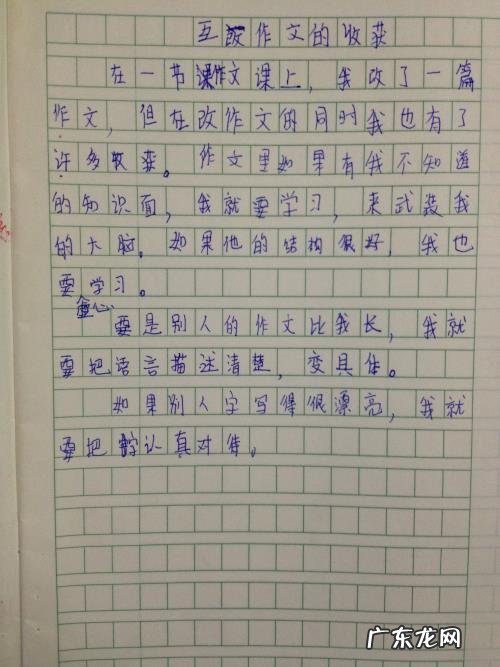 互改作文的收获
在一节作文课上，我改了一篇
作文，但在改作文的同时我也有了
许多收获。作文里如果有我不知道
的知识面，我就要学习，来武装我
的大脑。如果他的结构很好，我也
要学习。
要是别人的作文比我长，我就
要把语言描述清楚，变具体。
如果别人字写得很漂亮，我就
要把字认真对待。
广东龙网